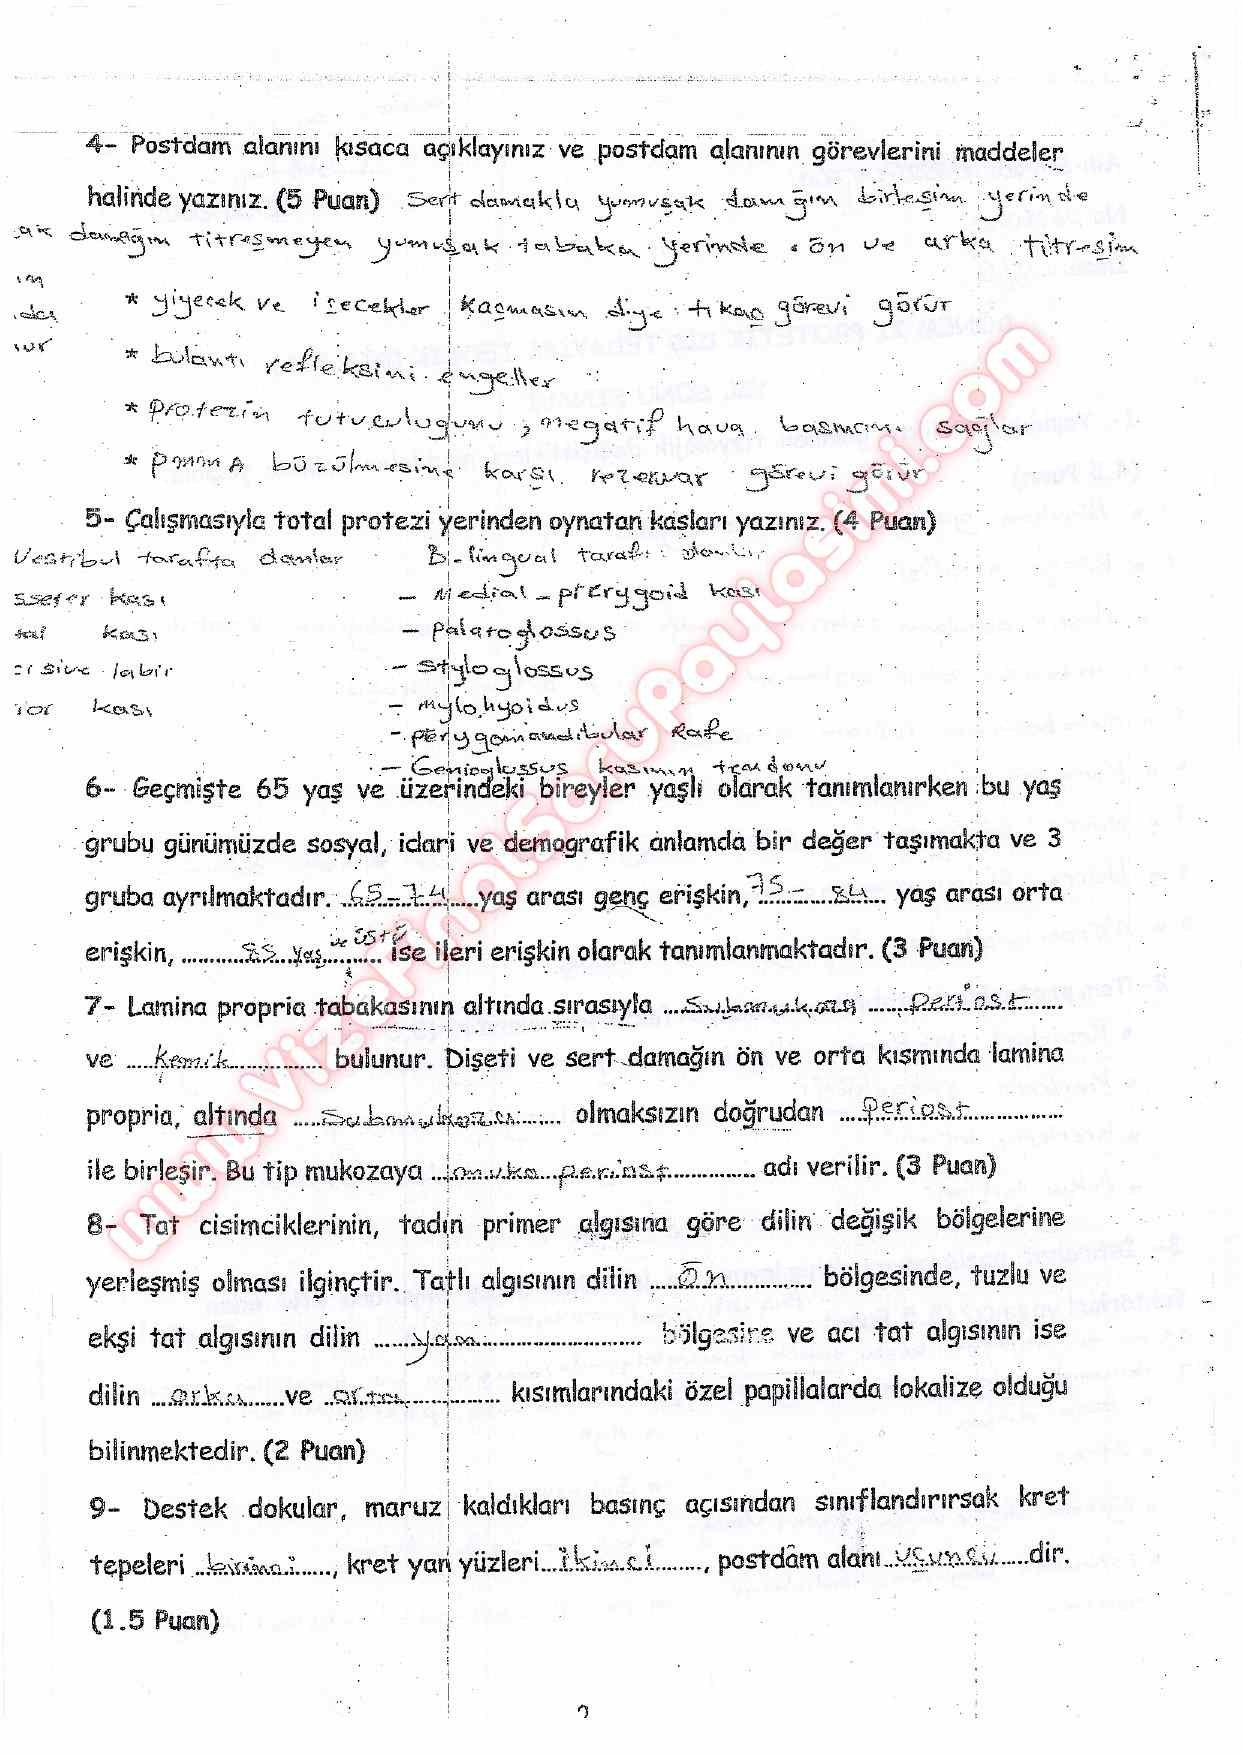 4- Postdam alanını kısaca açıklayınız ve postdam alanının görevlerini maddeler
halinde yazınız. (5 Puan) Sert damakla yumuşak damağın birleşim yerinde
ak damağın titreşmeyen yumuşak tabaka yerinde. ön ve arka titreşim
* yiyecek ve içecekler kaçmasın diye tıkaç görevi görür
* bulantı refleksini engeller
* protezin tutuculuğunu, negatif hava basıncını sağlar
* PMMA büzülmesine karşı rezervar görevi görür
5- Çalışmasıyla total protezi yerinden oynatan kasları yazınız. (4 Puan)
Vestibul tarafta olanlar B- lingual tarafta olanlar
sseter kası - Medial-pterygoid kası
kası - Palatoglossus
labii - Styloglossus
ior kası - mylohyoidus
- pterygomandibular Rafe
- Genioglossus kasının tendonu
6- Geçmişte 65 yaş ve üzerindeki bireyler yaşlı olarak tanımlanırken bu yaş
grubu günümüzde sosyal, idari ve demografik anlamda bir değer taşımakta ve 3
gruba ayrılmaktadır. 65-74 yaş arası genç erişkin, 75-84 yaş arası orta
erişkin, 85 yaş ve üstü ise ileri erişkin olarak tanımlanmaktadır. (3 Puan)
7- Lamina propria tabakasının altında sırasıyla Submukoza, Periost
ve kemik bulunur. Dişeti ve sert damağın ön ve orta kısmında lamina
propria, altında Submukoza olmaksızın doğrudan Periost
ile birleşir. Bu tip mukozaya muko periost adı verilir. (3 Puan)
8- Tat cisimciklerinin, tadın primer algısına göre dilin değişik bölgelerine
yerleşmiş olması ilginçtir. Tatlı algısının dilin Ön bölgesinde, tuzlu ve
ekşi tat algısının dilin Yan bölgesine ve acı tat algısının ise
dilin arka ve orta kısımlarındaki özel papillalarda lokalize olduğu
bilinmektedir. (2 Puan)
9- Destek dokular, maruz kaldıkları basınç açısından sınıflandırırsak kret
tepeleri birinci, kret yan yüzleri İkinci, postdam alanı üçüncü dir.
(1.5 Puan)
www.VizeFinalSoruPaylasimi.com
2